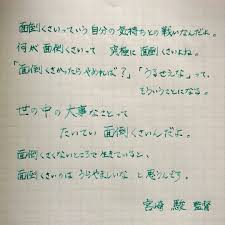 面倒くさいっていう自分の気持ちとの戦いなんだよ。
何が面倒くさいって 究極に面倒くさいよね。
「面倒くさかったらやめれば？」「うるせえな」って、
もういうことになる。
世の中の大事なことって
たいてい面倒くさいんだよ。
面倒くさくないところで生きていると、
面倒くさいのはうらやましいなと思うんです。
宮崎 駿 監督